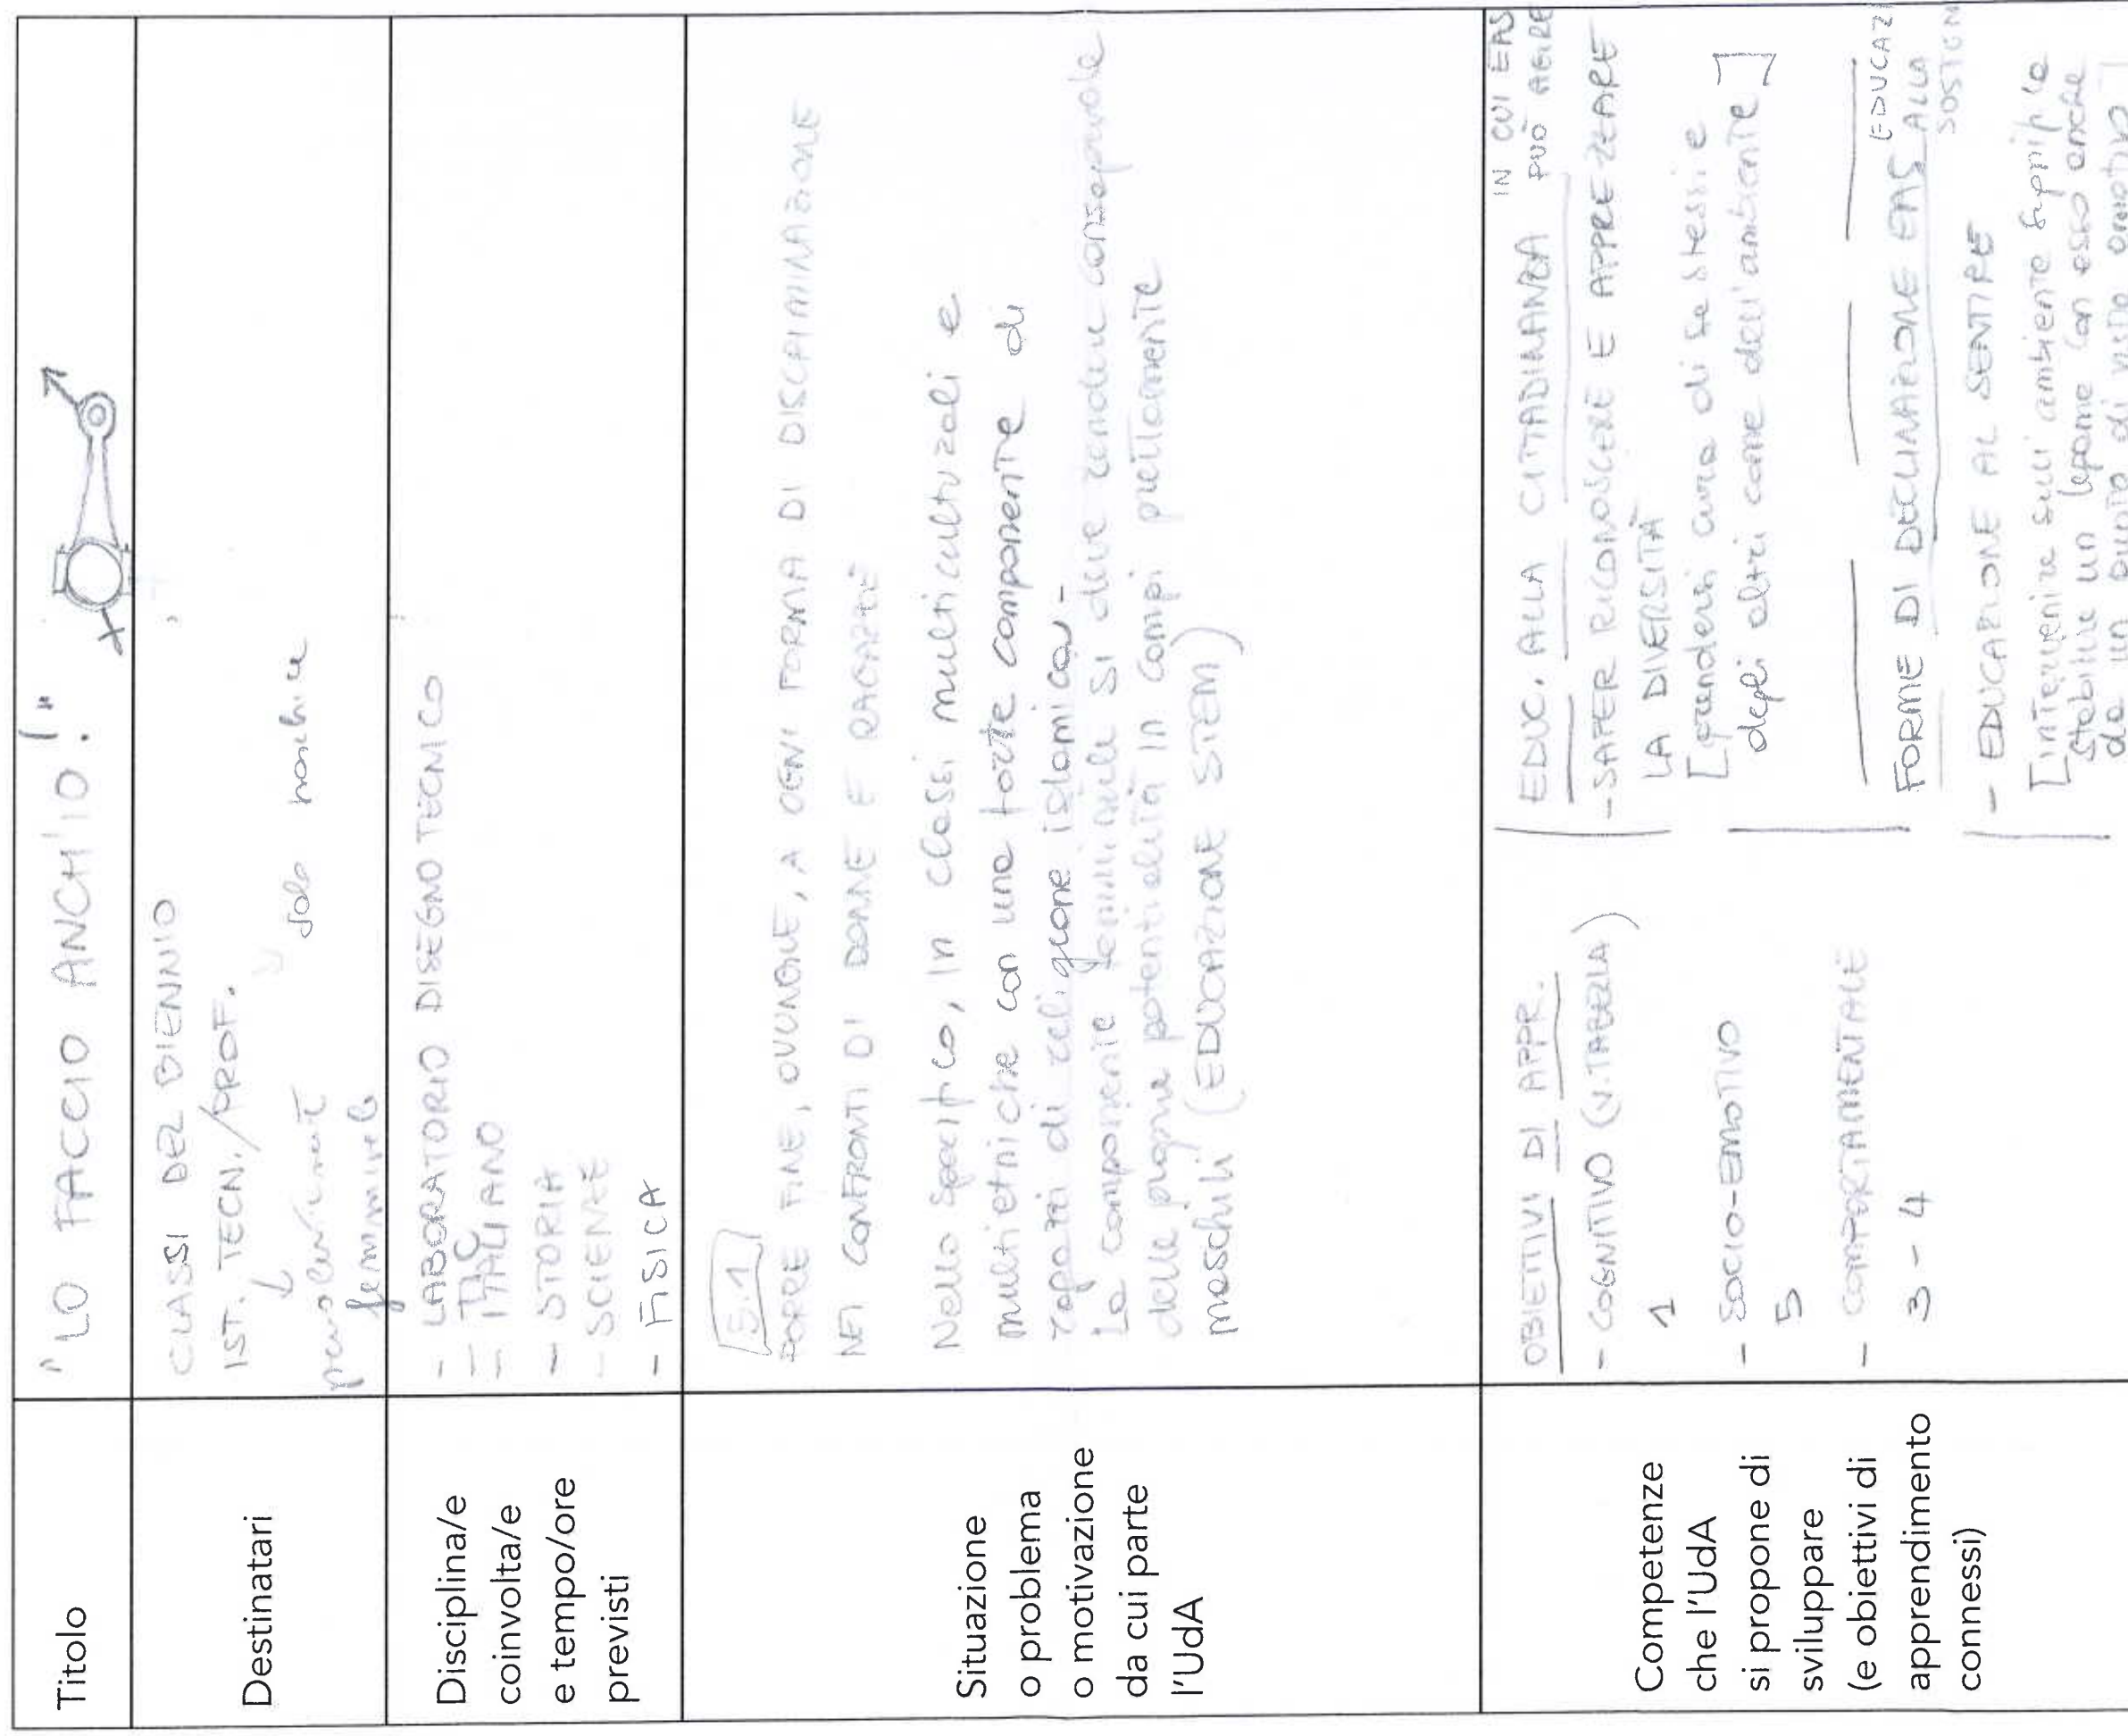 Titolo
"LO FACCIO ANCH'IO!"
Destinatari
CLASSI DEL BIENNIO
IST. TECN./PROF.
solo maschile
femminile
Disciplina/e
coinvolta/e
e tempo/ore
previsti
- LABORATORIO DISEGNO TECNICO
- TIC
- ITALIANO
- STORIA
- SCIENZE
- FISICA
Situazione
o problema
o motivazione
da cui parte
l'UdA
5.1
PORRE FINE, OVUNQUE, A OGNI FORMA DI DISCRIMINAZIONE
NEI CONFRONTI DI DONNE E RAGAZZE
Nello specifico, in classi multiculturali e
multietniche con una forte componente di
ragazzi di religione islamica -
La componente femminile si deve rendere consapevole
delle proprie potenzialità in compi prettamente
maschili (EDUCAZIONE STEM)
Competenze
che l'UdA
si propone di
sviluppare
(e obiettivi di
apprendimento
connessi)
OBIETTIVI DI APPR.
- COGNITIVO (V. TABELLA)
1
- SOCIO-EMOTIVO
5
- COMPORTAMENTALE
3 - 4
EDUC. ALLA CITTADINANZA IN CUI EAS
PUÒ AGIRE
- SAPER RICONOSCERE E APPREZZARE
LA DIVERSITÀ
[prendersi cura di se stessi e
degli altri come dell'ambiente]
FORME DI DECLINAZIONE EAS EDUCAZI
ALLA
SOSTEN
- EDUCAZIONE AL SENTIRE
[intervenire sull'ambiente signif. le
stabilire un legame con esso anche
da un punto di vista emotivo]